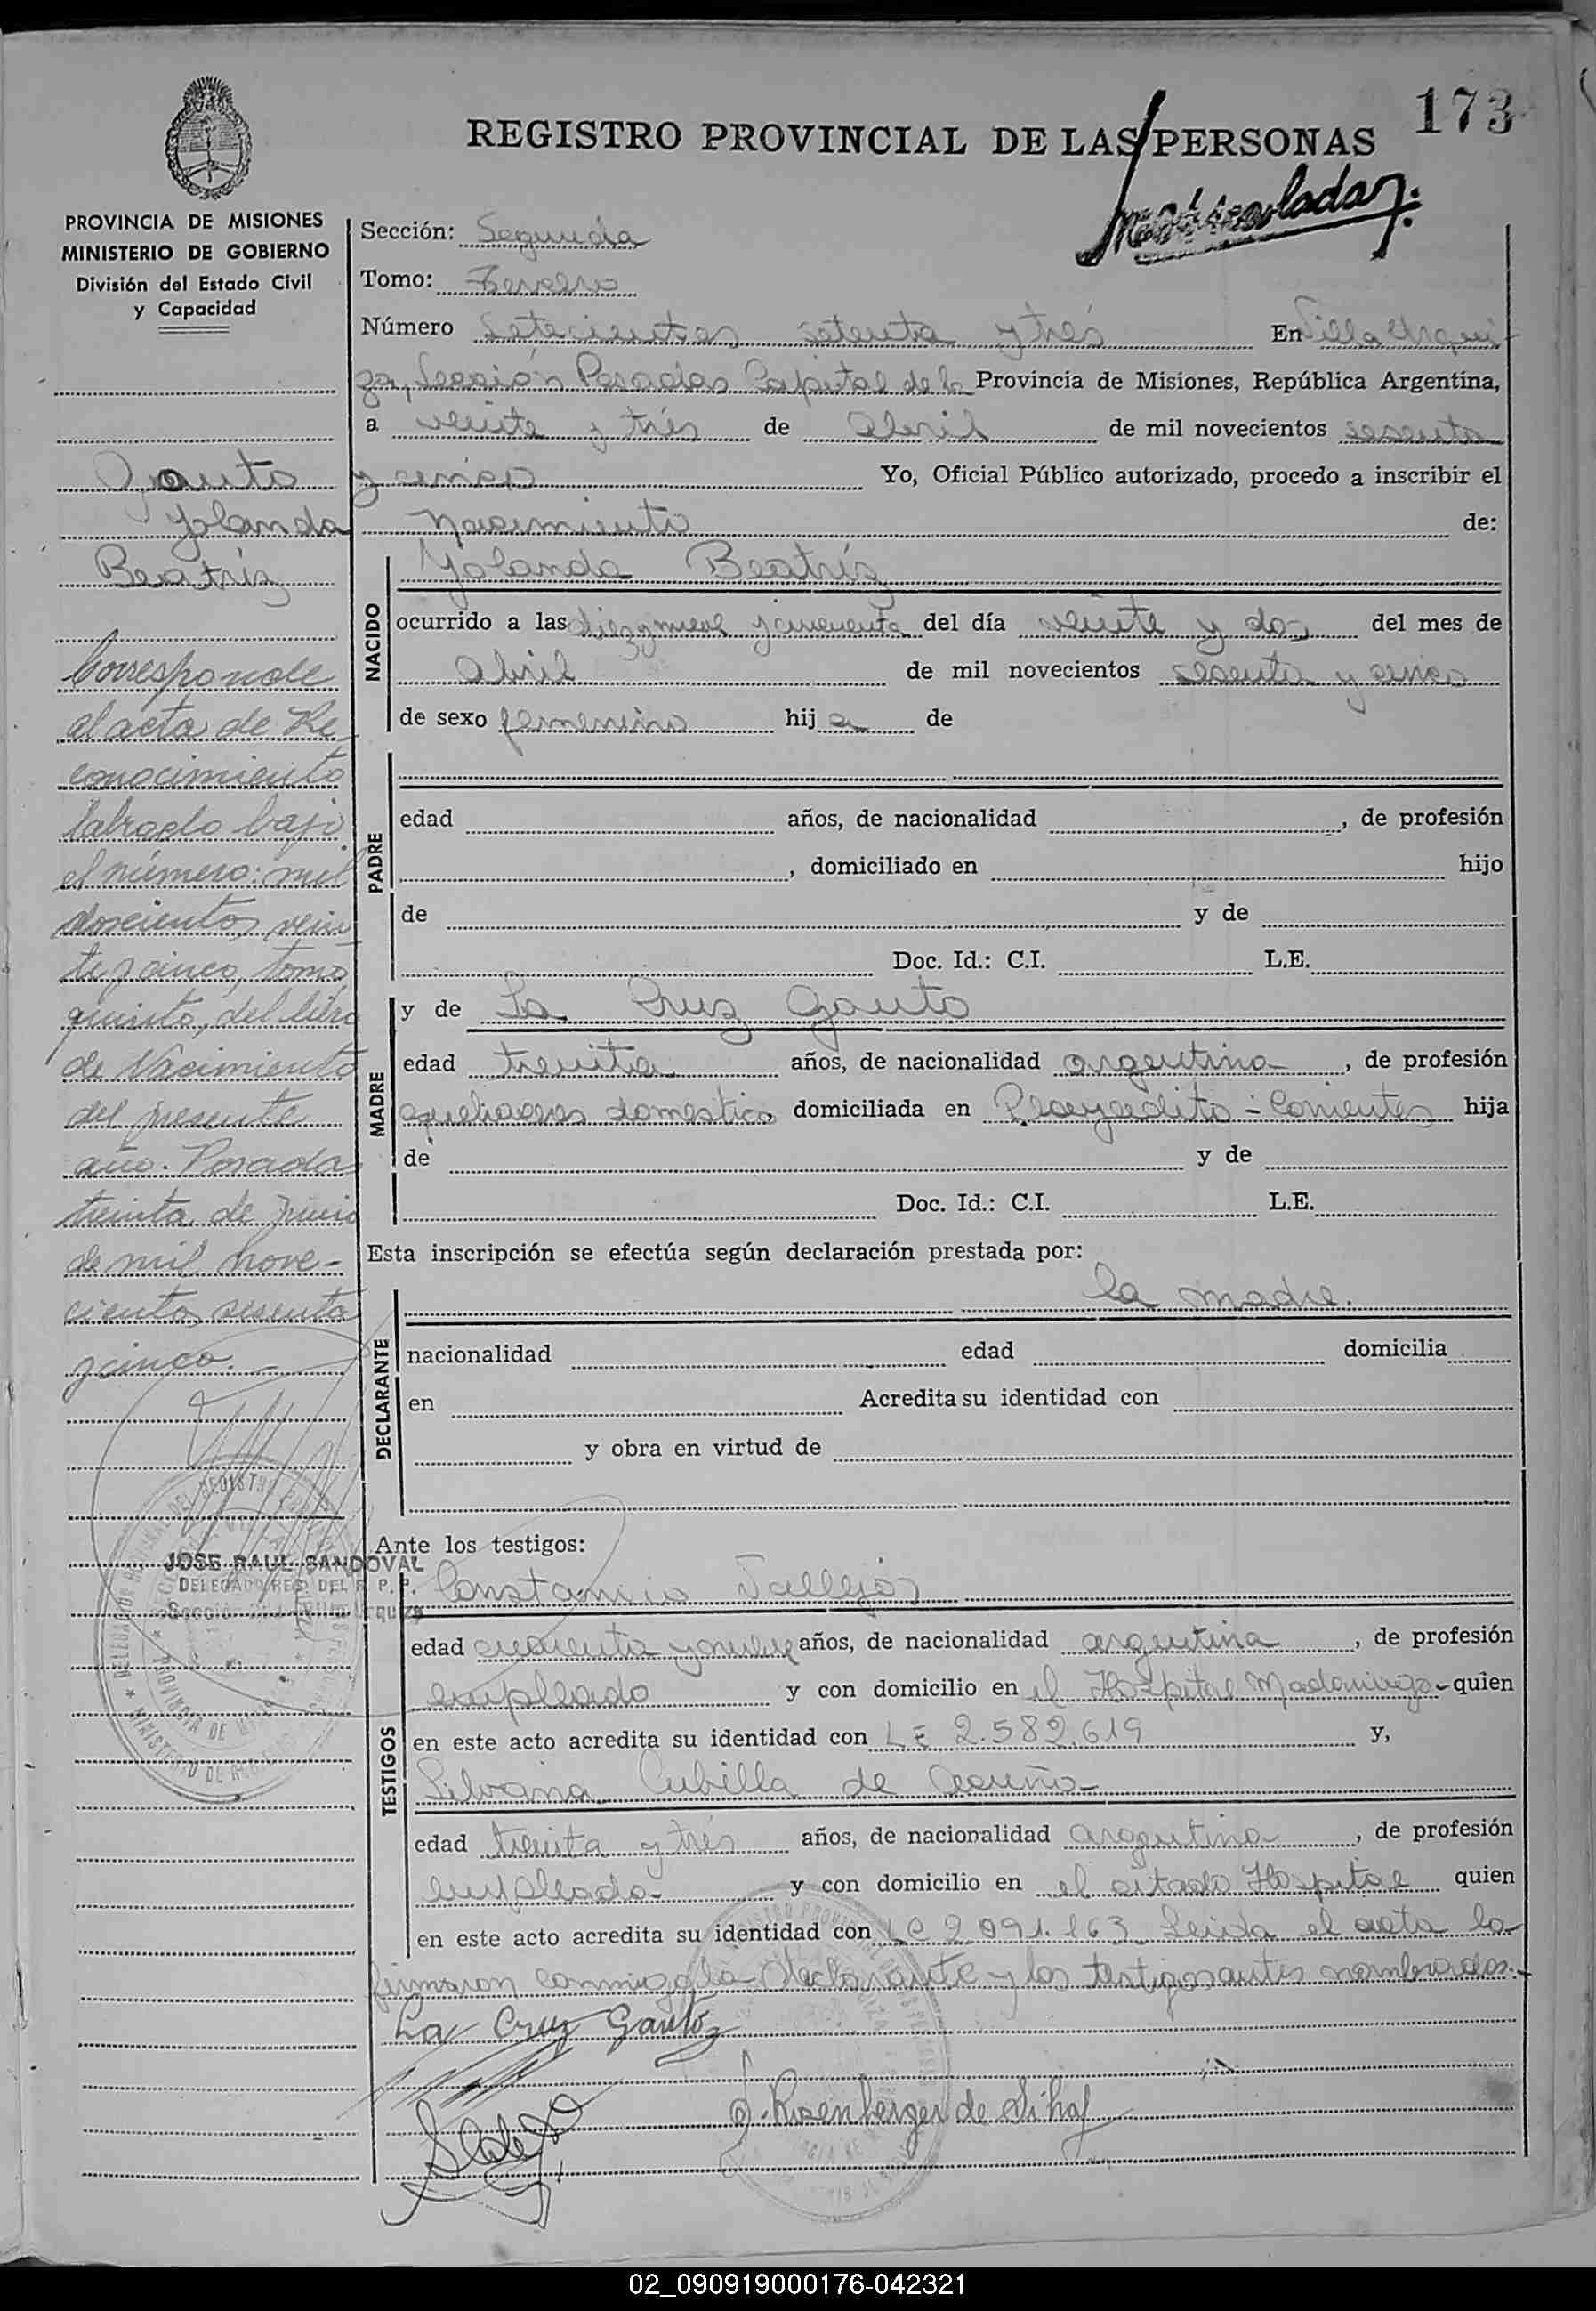 173
REGISTRO PROVINCIAL DE LAS PERSONAS
PROVINCIA DE MISIONES
MINISTERIO DE GOBIERNO
División del Estado Civil
y Capacidad
Gauto
Yolanda
Beatriz
Corresponde
al acta de Re
conocimiento
labrado bajo
el número: mil
doscientos vein
te y cinco, tomo
quinto, del libro
de Nacimiento
del presente
año. Posadas
treinta de junio
de mil nove-
cientos sesenta
y cinco.
JOSE RAUL SANDOVAL
DELEGADO REG DEL R. P. P.
Sección: Segunda
Tomo: Tercero
Número Setecientos setenta y tres En Villa Urqui
za, Sección Posadas Capital de la Provincia de Misiones, República Argentina,
a veinte y trés de Abril de mil novecientos sesenta
y cinco Yo, Oficial Público autorizado, procedo a inscribir el
nacimiento de:
NACIDO
Yolanda Beatríz
ocurrido a las diez y nueve y cincuenta del día veinte y dos del mes de
Abril de mil novecientos sesenta y cinco
de sexo femenino hij a de
PADRE
edad años, de nacionalidad , de profesión
, domiciliado en hijo
de y de
Doc. Id.: C.I. L.E.
MADRE
y de La Cruz Gauto
edad treinta años, de nacionalidad argentina , de profesión
quehaceres domestico domiciliada en Playadito - Corrientes hija
de y de
Doc. Id.: C.I. L.E.
Esta inscripción se efectúa según declaración prestada por:
DECLARANTE
la madre.
nacionalidad edad domicilia
en Acredita su identidad con
y obra en virtud de
Ante los testigos:
TESTIGOS
Constancio Vallejos
edad cuarenta y nueve años, de nacionalidad argentina , de profesión
empleado y con domicilio en el Hospital Madariaga - quien
en este acto acredita su identidad con LE 2.582.619 y,
Silvana Cubilla de Acuña
edad treinta y trés años, de nacionalidad argentina , de profesión
empleada y con domicilio en el citado Hospital quien
en este acto acredita su identidad con LC 2.091.163 Leida el acta la
firmaron conmigo la declarante y los testigos antes nombrados.
La Cruz Gauto
Rosenberger de
02_090919000176-042321